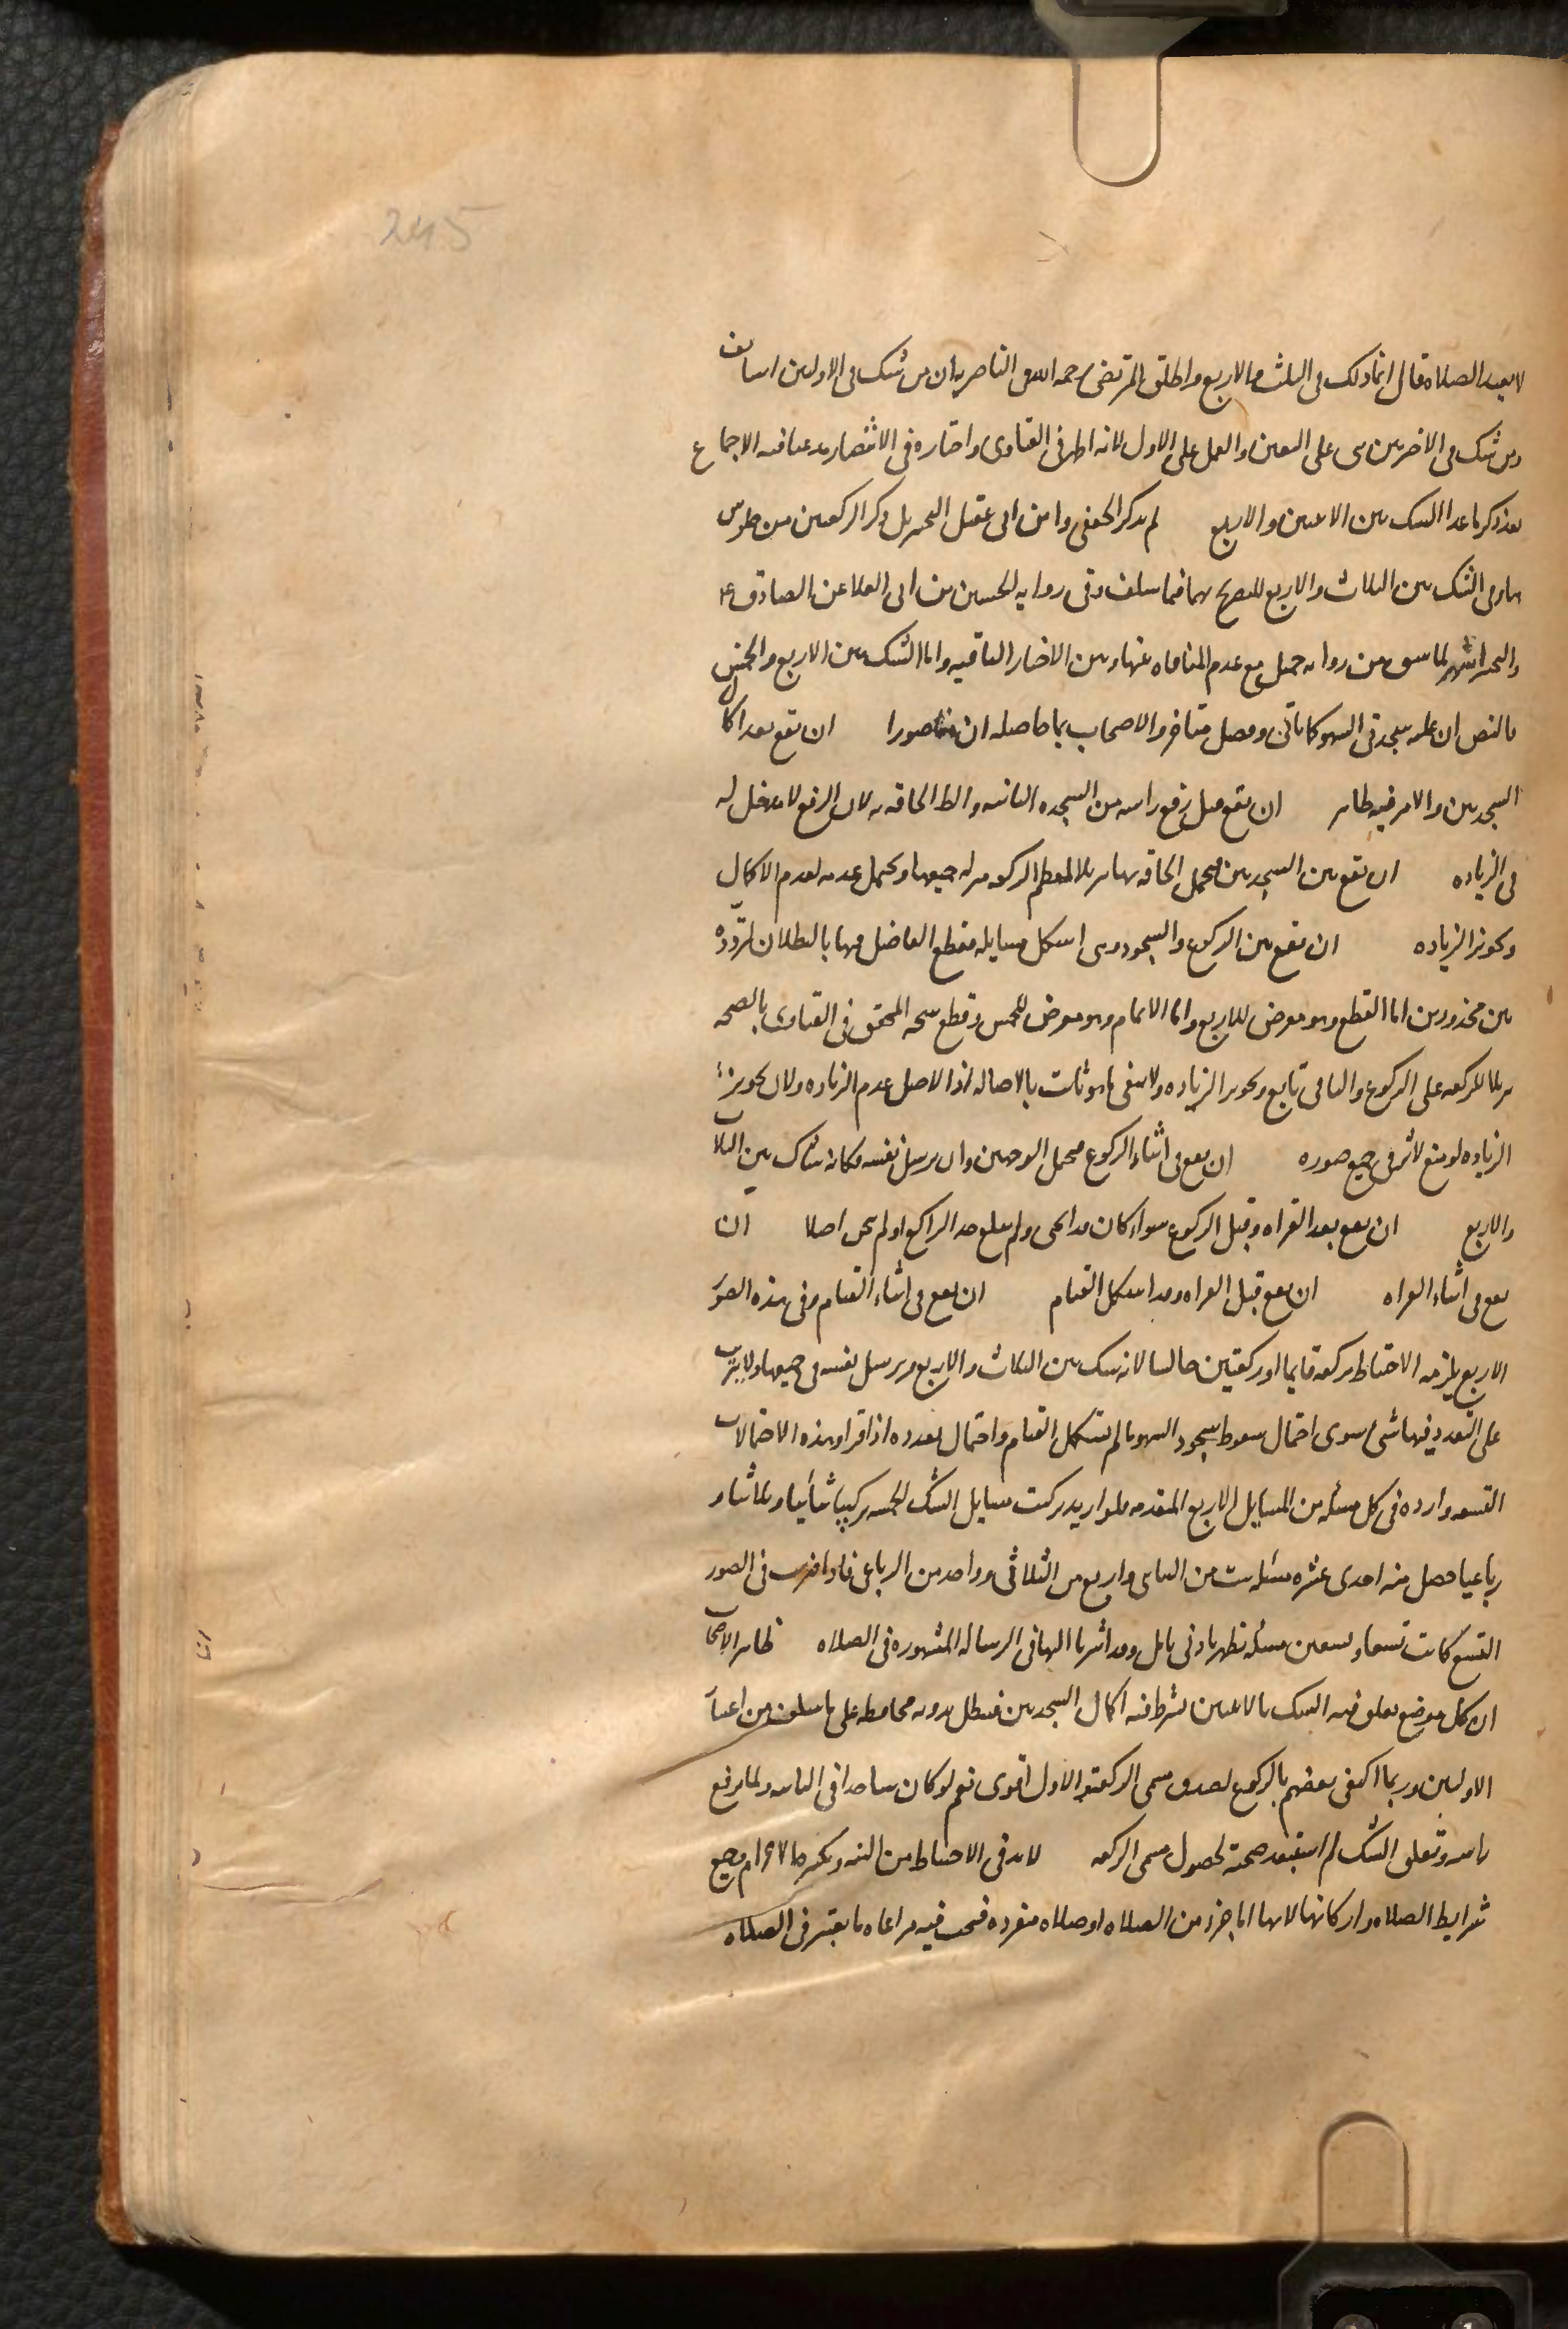 245
لا يعيد الصلاه قال انما ذلك في الثلث والاربع واطلق المرتضى رحمه الله في الناصرية ان من شك في الاولين استانف
ومن شك في الاخيرتين بنى على اليقين والعمل على الاول لانه اظهر في الفتاوى واختاره في الانتصار مدعيا فيه الاجماع
بعد ذكر ما عدا الشك بين الاثنين والاربع لم يذكر الجعفي وابن ابي عقيل التخيير بل ذكرا الركعتين من جلوس
هنا وفي الشك بين الثلاث والاربع للتصريح بهما فيما سلف وفي رواية الحسين بن ابي العلا عن الصادق ع
والتخيير اشهر لما سبق من رواية جميل مع عدم المنافاه بينها وبين الاخبار الباقيه واما الشك بين الاربع والخمس
بالنص ان عليه سجدتي السهو كما ياتي وفصل متاخروا الاصحاب بما حاصله ان هنا صورا ان تقع بعد اكمال
السجدتين والامر فيه ظاهر ان يقع قبل رفع راسه من السجده الثانيه والظ الحاقه به لان الرفع لا مدخل له
في الزياده ان تقع بين السجدتين فيحتمل الحاقه بهما تنزيلا لمعظم الركعه منزله جميعها ويحتمل عدمه لعدم الاكمال
وتجويز الزياده ان يقع بين الركوع والسجود وهي اشكل مسايله فقطع الفاضل فيها بالبطلان لتردّده
بين محذورين اما القطع وهو معرض للاربع واما الاتمام وهو معرض للخمس وقطع شيخه المحقق في الفتاوى بالصحه
تنزيلا للركعه على الركوع والباقي تابع وتجويز الزياده ولا ينفي ما هو ثابت بالاصاله اذ الاصل عدم الزياده ولان تجويز
الزياده لو منع لاثر في جميع صوره ان يقع في اثناء الركوع فيحتمل الوجهين وان يرسل نفسه فكانه شاك بين الثلاث
والاربع ان يقع بعد القراه وقبل الركوع سواء كان قد انحنى ولم يبلغ حد الراكع او لم ينحن اصلا ان
يقع في اثناء القراه ان يقع قبل القراه وقد استكمل القيام ان يقع في اثناء القيام وفي هذه الصور
الاربع يلزمه الاحتياط بركعه قايما او ركعتين جالسا لانه شك بين الثلاث والاربع ويرسل نفسه في جميعها ولا يترتب
على التعدد فيها شيء سوى احتمال سقوط سجود السهو ما لم يستكمل القيام واحتمال تعدده اذا قرا وهذه الاحتمالات
التسعه وارده في كل مسئله من المسايل الاربع المتقدمه فلو اريد تركيب مسايل الشك الخمسه تركيبا ثنائيا وثلاثيا و
رباعيا حصل منه احدى عشره مسئله ست من الثنائي واربع من الثلاثي وواحد من الرباعي فاذا ضربت في الصور
التسع كانت تسعا وتسعين مسئله تظهر بادنى تامل وقد اشرنا اليها في الرساله المشهوره في الصلاه ظاهر الاصحاب
ان كل موضع تعلق فيه الشك بالاثنين يشترط فيه اكمال السجدتين فتبطل بدونه محافظه على ما سلف من اعتبار
الاولتين وربما اكتفى بعضهم بالركوع لصدق مسمى الركعة والاول اقوى نعم لو كان ساجدا في الثانيه ولما يرفع
راسه وتعلق الشك لم استبعد صحته لحصول مسمى الركعه لا بد في الاحتياط من النيه وتكبيره الاحرام وجميع
شرايط الصلاه واركانها لانها اما جزء من الصلاه او صلاه منفرده فيجب فيه مراعاه ما يعتبر في الصلاه